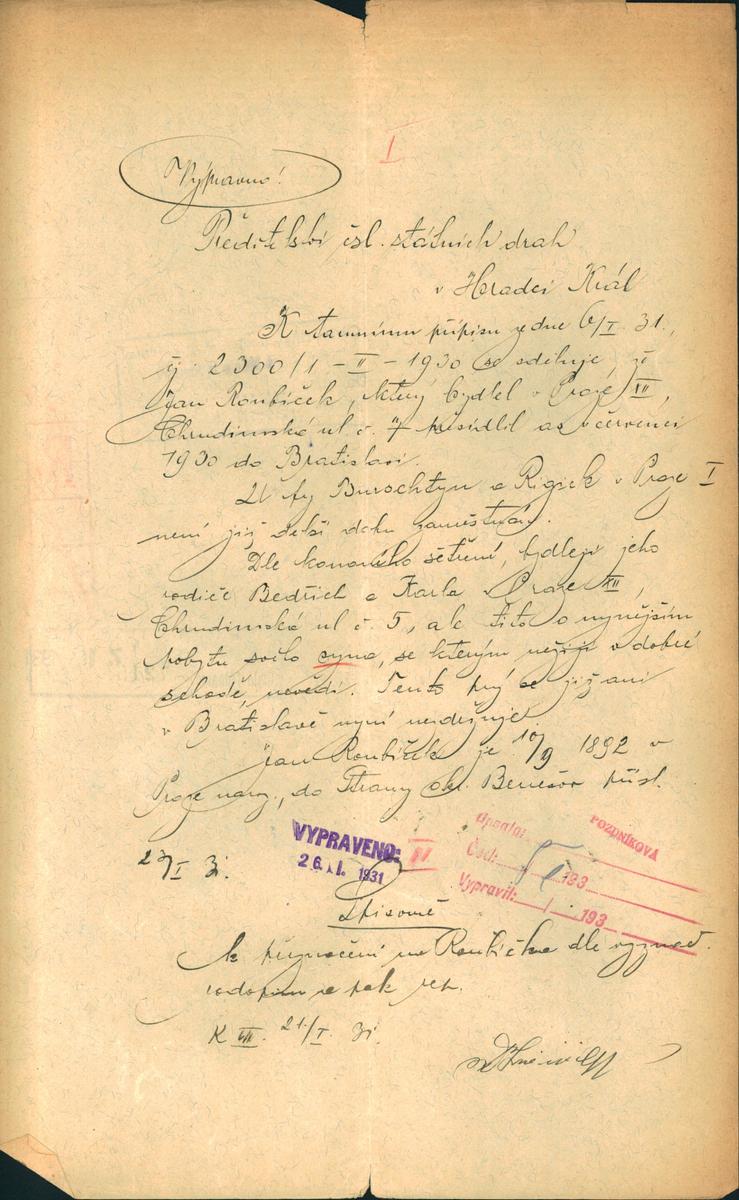 I
Výpravno!
Ředitelství čsl. státních drah
v Hradci Král
K tamnímu přípisu ze dne 6/I. 31.,
čj. 2300/1-II-1930 se sděluje, že
Jan Roubíček, který bydlel v Praze XII,
Chrudimská ul č. 7 přesídlil as v červenci
1930 do Bratislavi.
U fy a v Praze I
není již delší dobu zaměstnán.
Dle konaného šetření, bydlejí jeho
rodiče Bedřich a Karla v Praze XII,
Chrudimská ul č. 5, ale tito o nynějším
pobytu svého syna, se kterým nežijí v dobré
shodě, nevědí. Tento prý se již ani
v Bratislavě nyní nezdržuje.
Jan Roubíček je 10/9 1892 v
Praze naroz., do okr. Benešov přísl.
VYPRAVENO:
26. I. 1931
Opsala: POZDNÍKOVÁ
Čtl: 193
Vypravit: / 193
I 31.
Spisovně
K přiznačení na Roubíčka dle vyznač.
rodopisu a pak rep.
K VII. 21./I. 31.